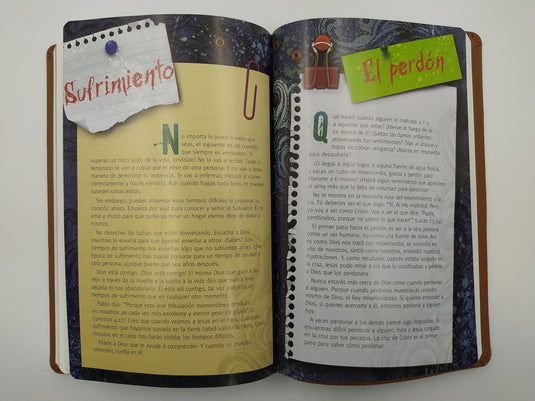 Sufrimiento
No importa lo joven o viejo que
seas, el siguiente es un consejo
que siempre es verdadero: Si
esperas un trato justo de la vida, ¡olvídalo! No lo vas a recibir. Tarde o
temprano te van a culpar por el error de otra persona. Y no vas a tener
manera de demostrar tu inocencia. Te vas a enfermar, incluso si comes
correctamente y haces ejercicio. Aun cuando hagas todo bien, te pueden
suceder cosas malas.
Sin embargo, puedes atravesar esos tiempos difíciles si preparas tu
corazón ahora. Empieza por vivir para conocer y servir al Salvador. Él te
ama y murió para que pudieras tener un hogar eterno libre de dolor y
tristeza.
No deseches las luchas que estás atravesando. Escucha a Dios,
mientras te enseña para que puedas enseñar a otros. ¿Sabes? Los
tiempos de sufrimiento nos enseñan algo que no sabíamos antes. Y una
época de sufrimiento nos puede preparar para un tiempo de ayudar a
otra persona, aunque pueda que sea años después.
Dios está contigo. ¡Dios está contigo! El mismo Dios que guió a su
Hijo a través de la muerte y la vuelta a la vida dijo que nunca nos
dejaría ni nos abandonaría. Él está allí contigo, tal vez aún más en
sufrimiento que en cualquier otro momento.
Pablo dijo: "Porque esta leve tribulación momentánea produce
en nosotros un cada vez más excelente y eterno peso de gloria" (2
Corintios 4:17). Creo que cuando veamos a Jesús en el cielo, cualquier
sufrimiento que hayamos pasado en la tierra habrá valido la pena. Cinco
minutos en el cielo nos harán olvidar los tiempos difíciles.
Pídele a Dios que te ayude a comprender. Y cuando no puedas
entender, confía en él.
El perdón
Qué haces cuando alguien te maltrata a ti o
a aquellos que amas? ¿Hierve el fuego de la
ira dentro de ti? ¿Saltan las llamas ardientes
atravesando tus sentimientos? ¿Vas al ataque y
tratas de cobrar venganza? ¿Atacas en respuesta
para desquitarte?
¿O llegas a algún lugar, a alguna fuente de agua fresca,
y sacas un cubo de misericordia, gracia y perdón para
liberarte a ti mismo? ¿Habrá algún sentimiento que aprisione
el alma más que la falta de voluntad para perdonar?
No te montes en la montaña rusa del resentimiento y la
ira. Tú deberías ser el que dijo: "Sí, él me maltrató. Pero
yo voy a ser como Cristo. Voy a ser el que dice: 'Padre,
perdónalos, porque no saben lo que hacen'" (Lucas 23:34).
El primer paso hacia el perdón es ver a la otra persona
como un ser humano, no como una fuente de dolor. Así
es como Dios nos trató con misericordia, se convirtió en
uno de nosotros, sintió como nosotros, entendió nuestras
frustraciones. Y, como resultado, cuando estaba colgado en
la cruz, Jesús pudo mirar a los que lo crucificaban y pedirle
a Dios que los perdonara.
Nunca estarás más cerca de Dios como cuando perdonas
a alguien. Porque cuando perdonas muestras el corazón
mismo de Dios, el Rey misericordioso. Si quieres entender a
Dios, si quieres acercarte a él, entonces perdona a alguien
hoy.
A veces perdonar a los demás parece algo imposible. Si
encuentras difícil perdonar a alguien, mira a Jesús colgado
en la cruz por tus pecados. La cruz de Cristo es el primer
paso para saber cómo perdonar.